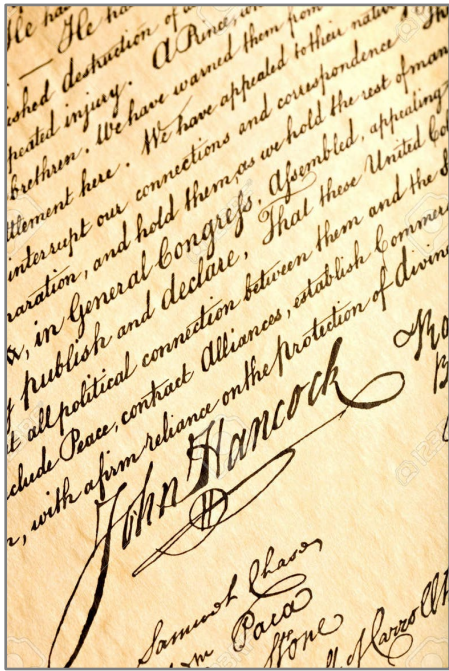 He has
He ha
ished destruction of a
peated injury. A Prince, w
brethren. We have warned them from
ttlement here. We have appealed to their native
interrupt our connections and correspondence. Th
naration, and hold them, as we hold the rest of man
a, in General Congress, Assembled, appealing
publish and declare, That these United Col
t all political connection between them and the S
clude Peace, contract Alliances, establish Commer
n, with a firm reliance on the protection of divin
John Hancock
Ro
B
Samuel Chase
Wm Paca
Thos Stone
ll of Carrollt